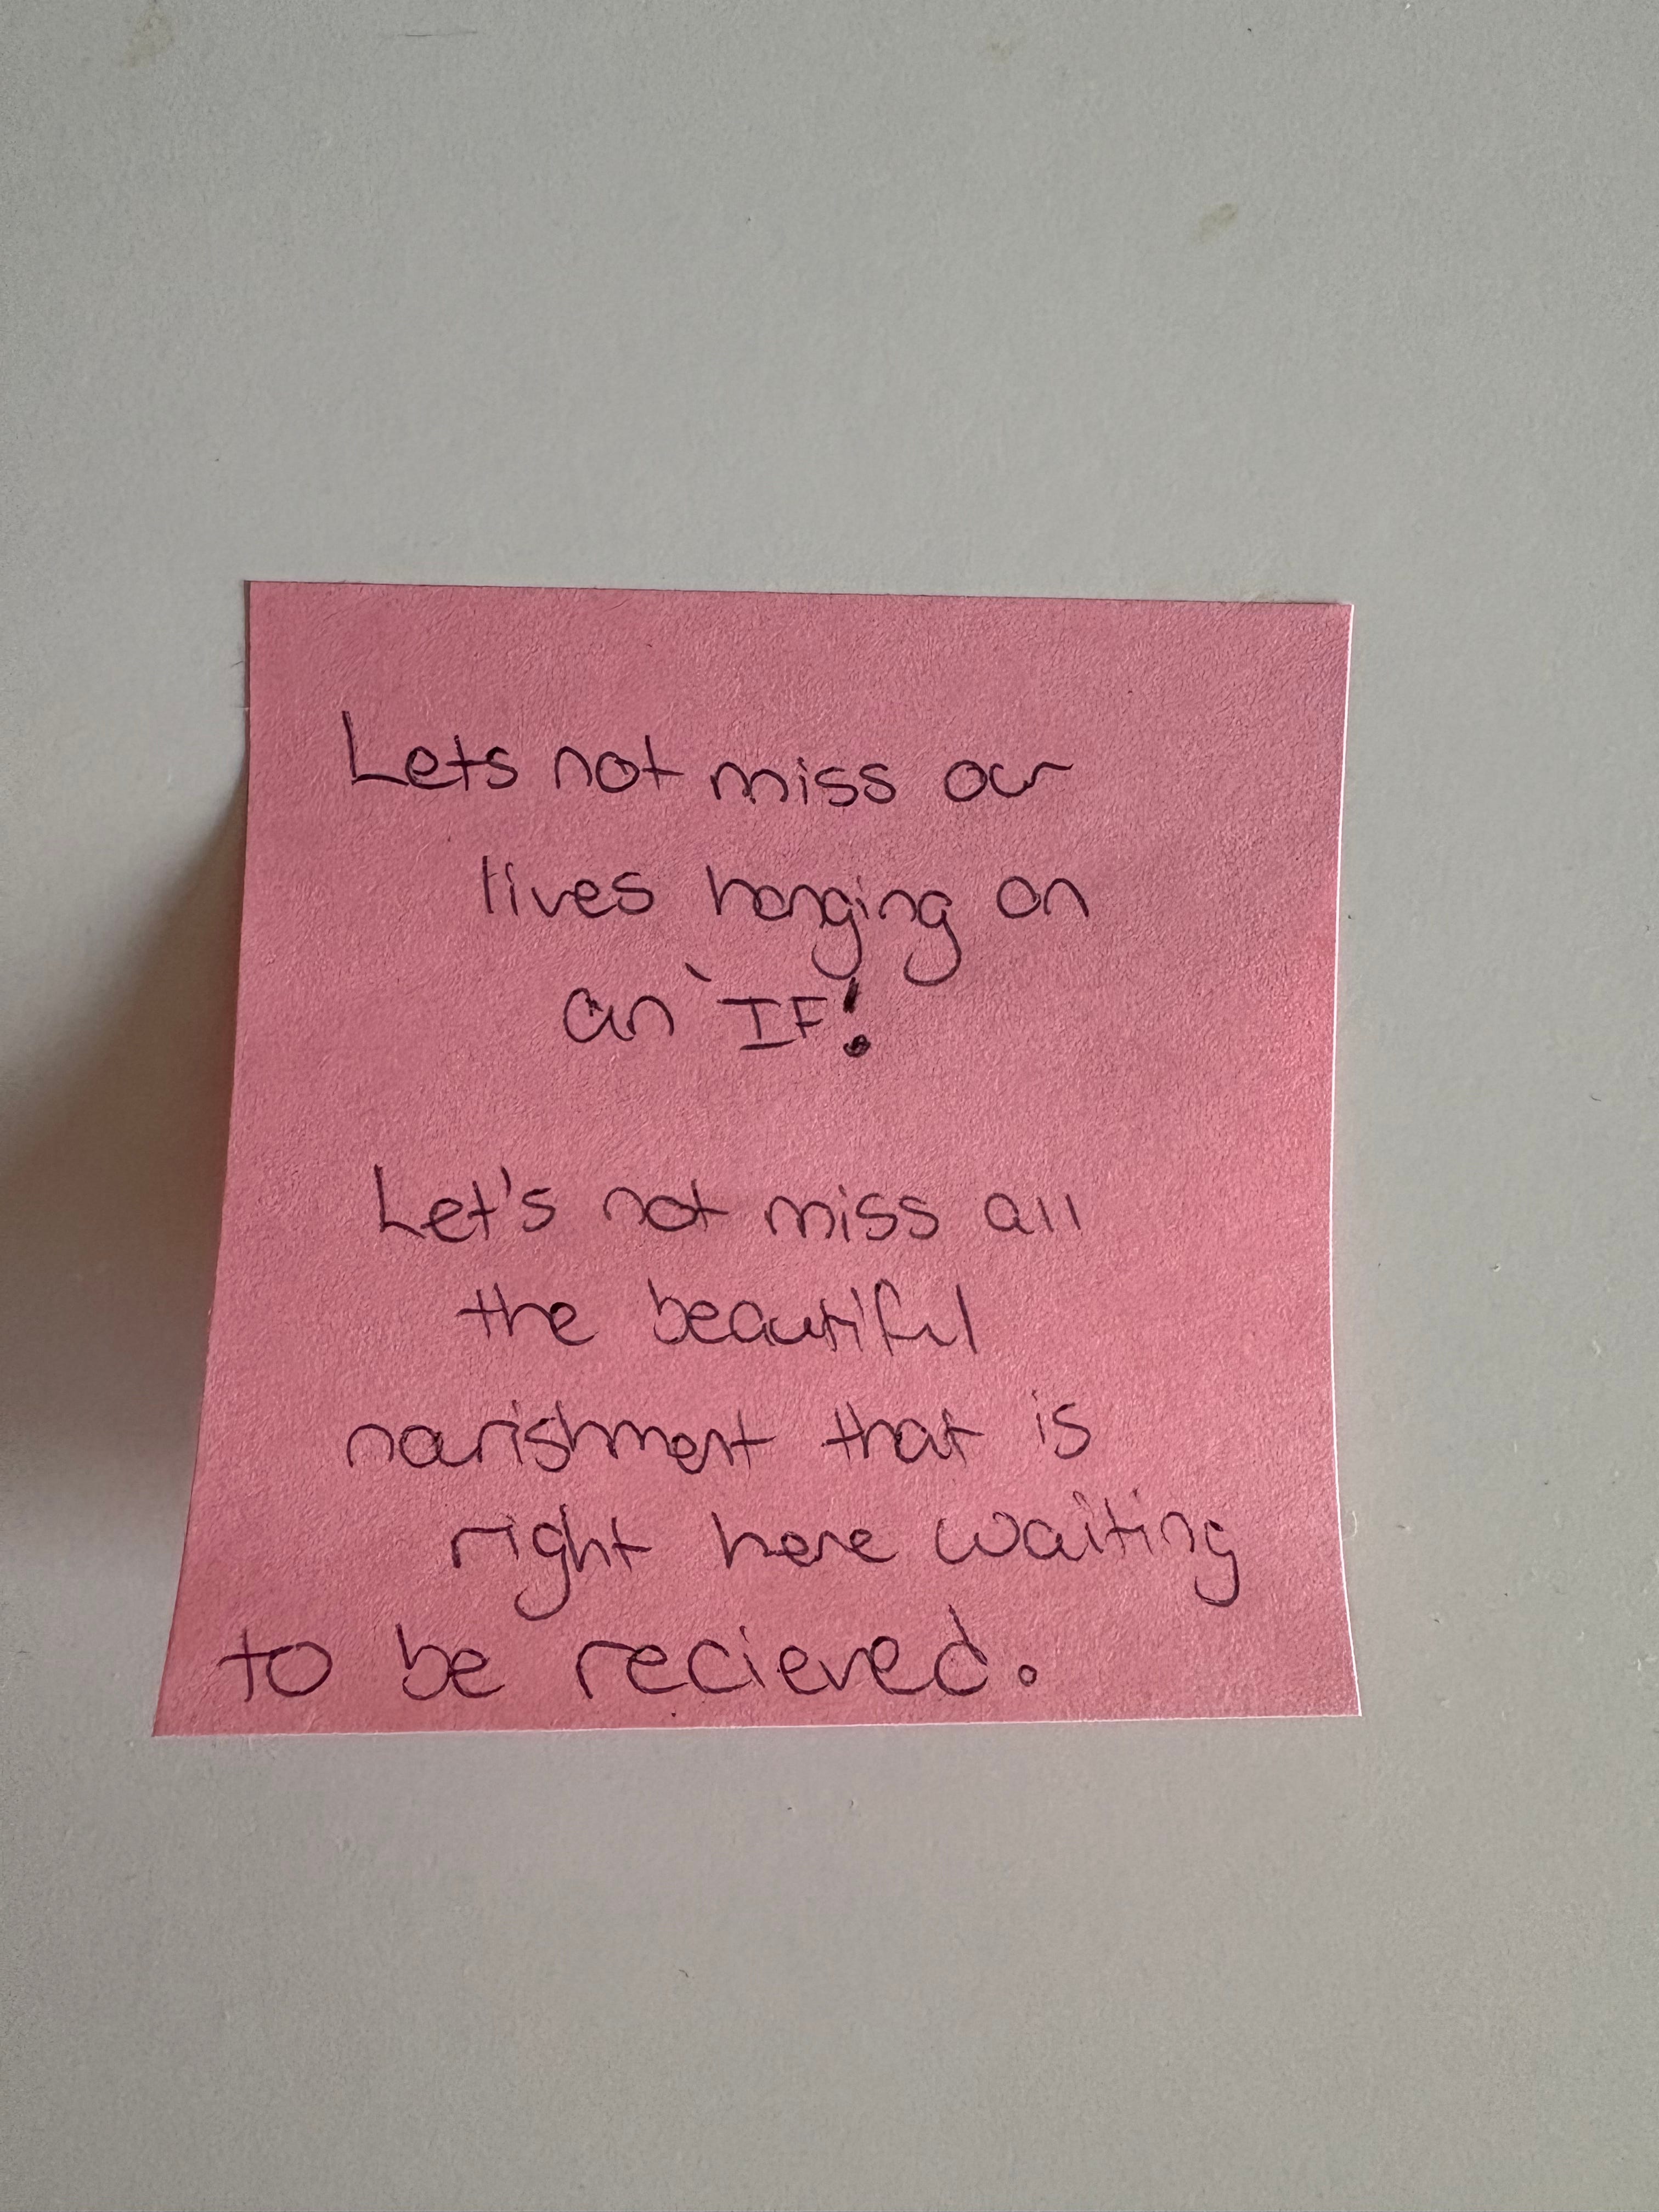 Lets not miss our
lives hanging on
an `IF!
Let's not miss all
the beautiful
nourishment that is
right here waiting
to be recieved.